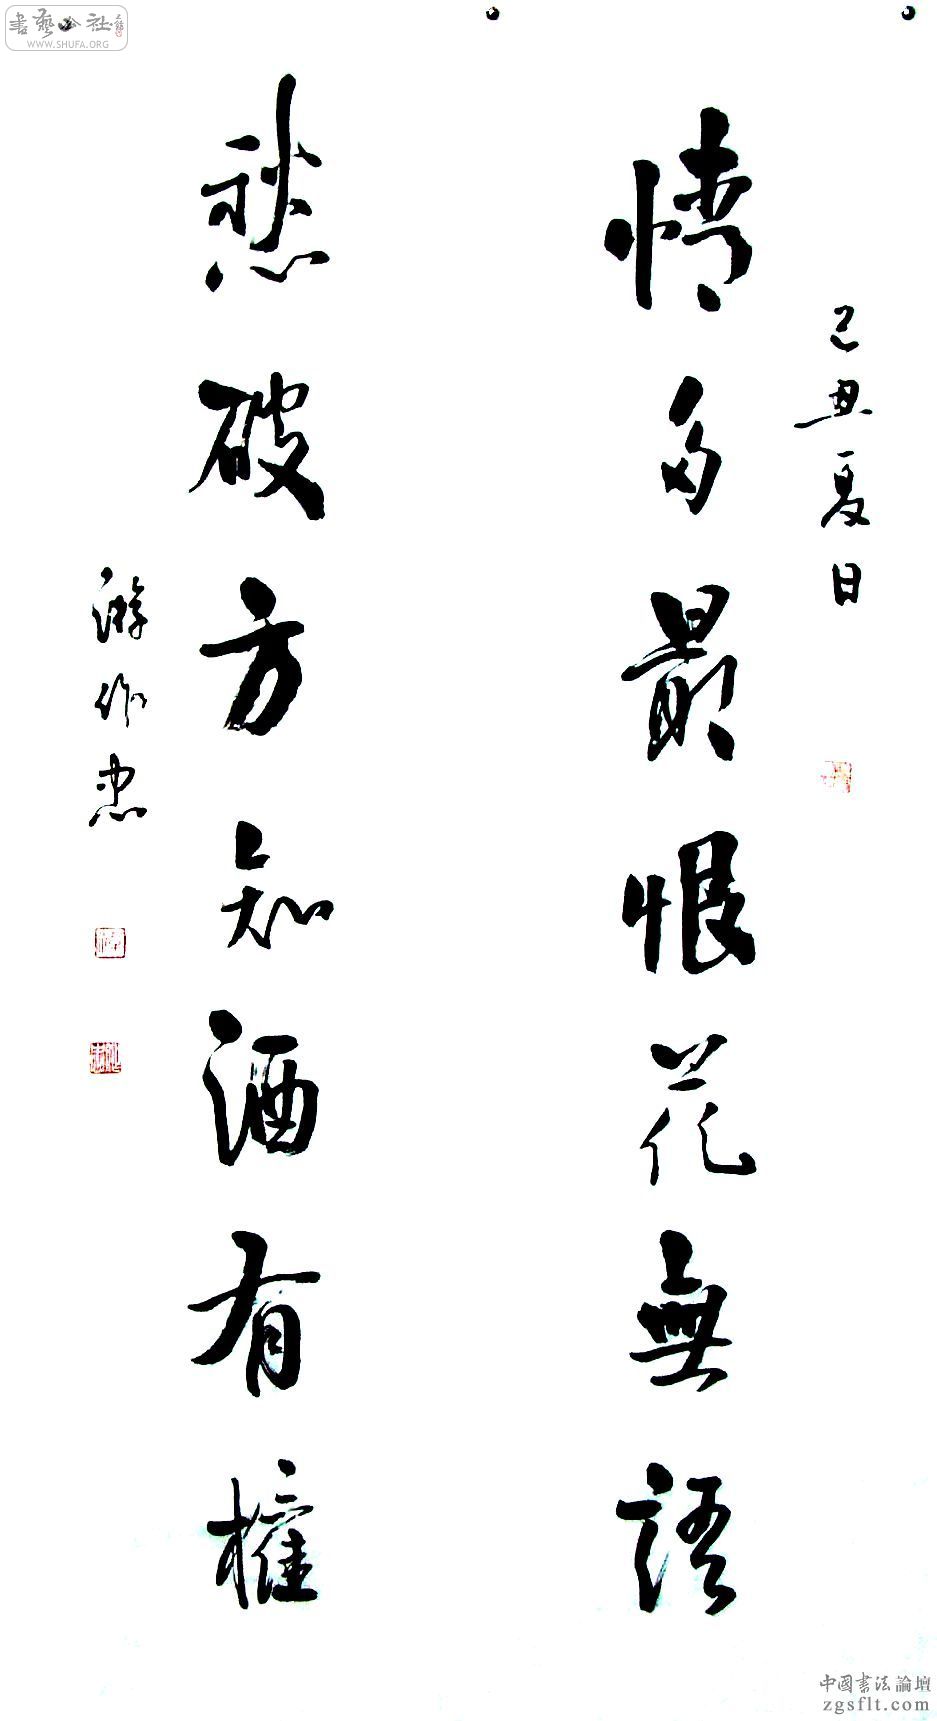 己丑夏日
情多最恨花無語
愁破方知酒有權
游作忠
書藝公社
WWW.SHUFA.ORG
中國書法論壇
zgsflt.com